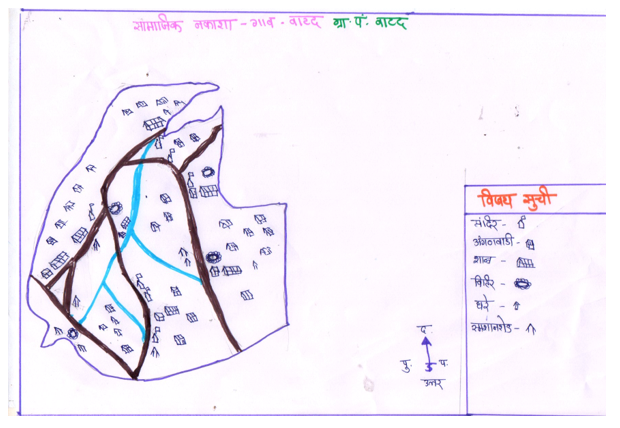 सामाजिक नकाशा - गाव - वाटद ग्रा. पं. वाटद
विषय सुची
मंदिर -
अंगणवाडी -
शाळा -
विहिर -
घरे -
स्मशानशेड -
द
पु. उ प.
उत्तर